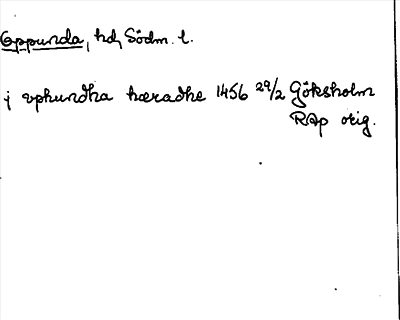 Oppunda, hd, Södm. l.
j vphundha hæradhe 1456 29/2 Göksholm
RAp orig.